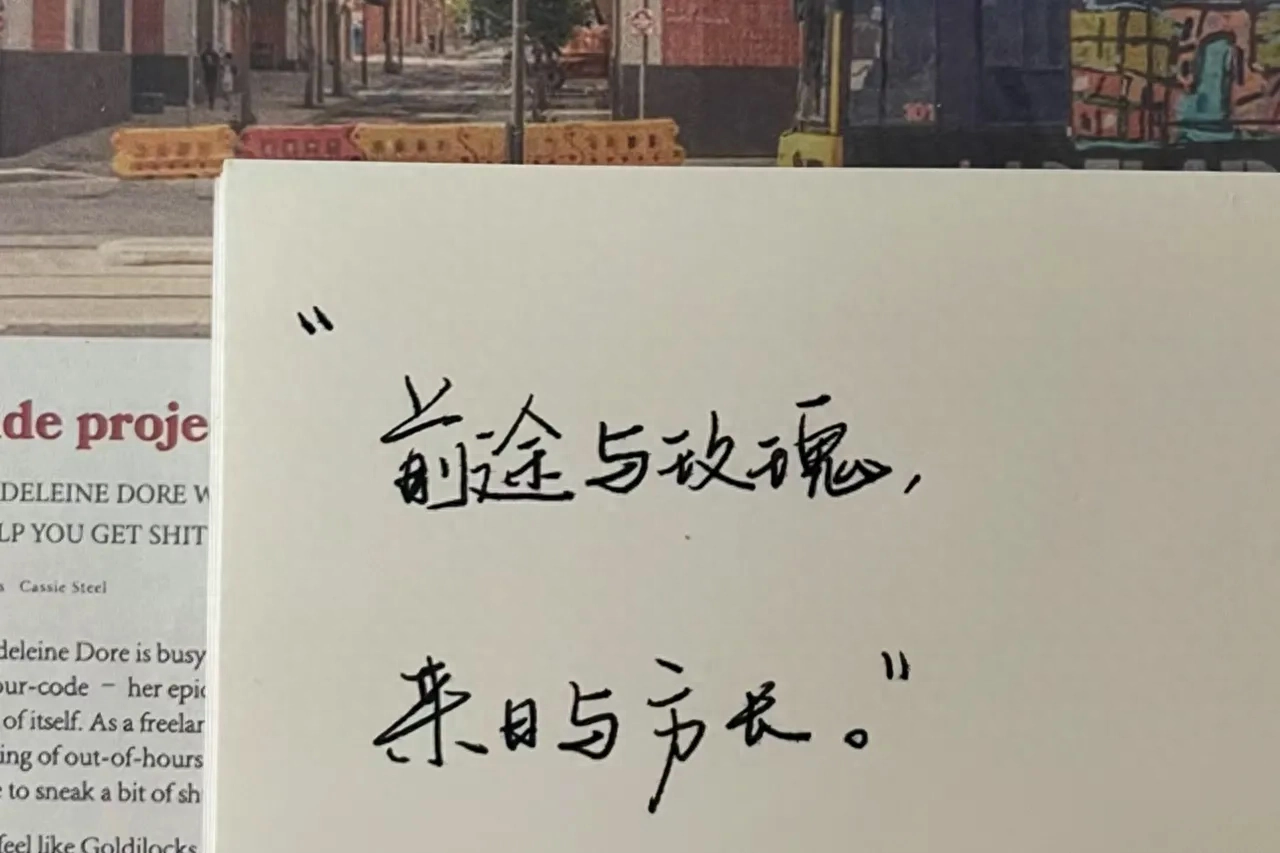 101
de proje
DELEINE DORE W
LP YOU GET SHIT
s Cassie Steel
deleine Dore is busy
our-code – her epic
of itself. As a freelar
ing of out-of-hours
to sneak a bit of sh
feel like Goldilocks
“
前途与玫瑰，
来日与方长。”